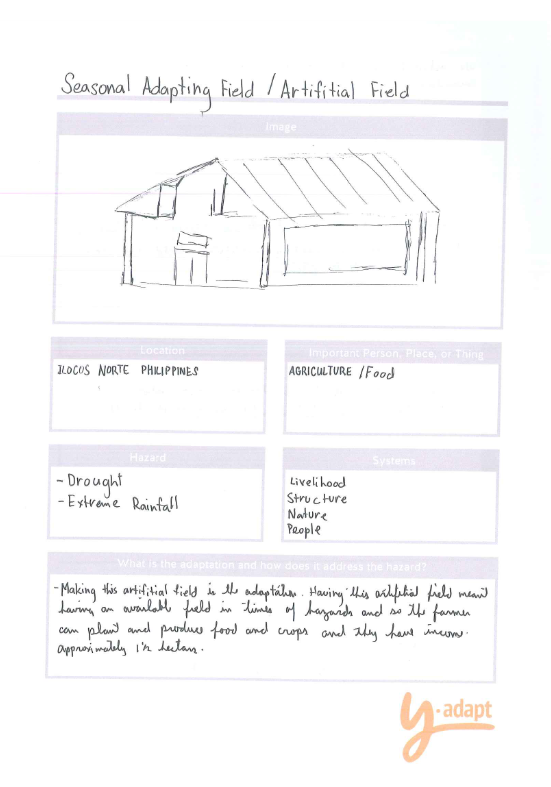 Seasonal Adapting Field / Artifitial Field
Image
Location
ILOCUS NORTE PHILIPPINES
Important Person, Place, or Thing
AGRICULTURE /Food
Hazard
- Drought
- Extreme Rainfall
Systems
Livelihood
Structure
Nature
People
What is the adaptation and how does it address the hazard?
- Making this artifitial field is the adaptation. Having this artifitial field meant
having an available field in times of hazards and so the farmer
can plant and produce food and crops and they have income.
approximately 1½ hectars.
y-adapt